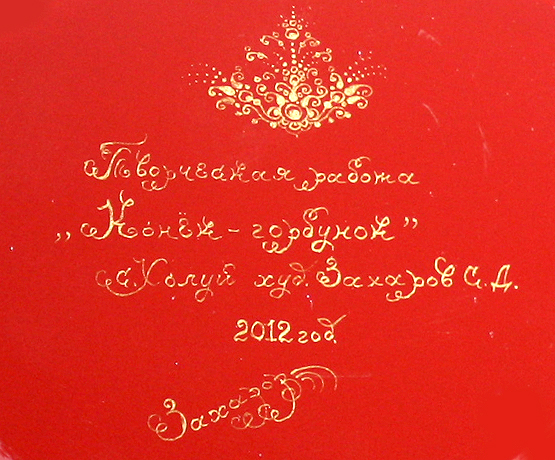 Творческая работа
„Конёк-горбунок”
с. Холуй худ. Захаров С. Д.
2012 год
Захаров